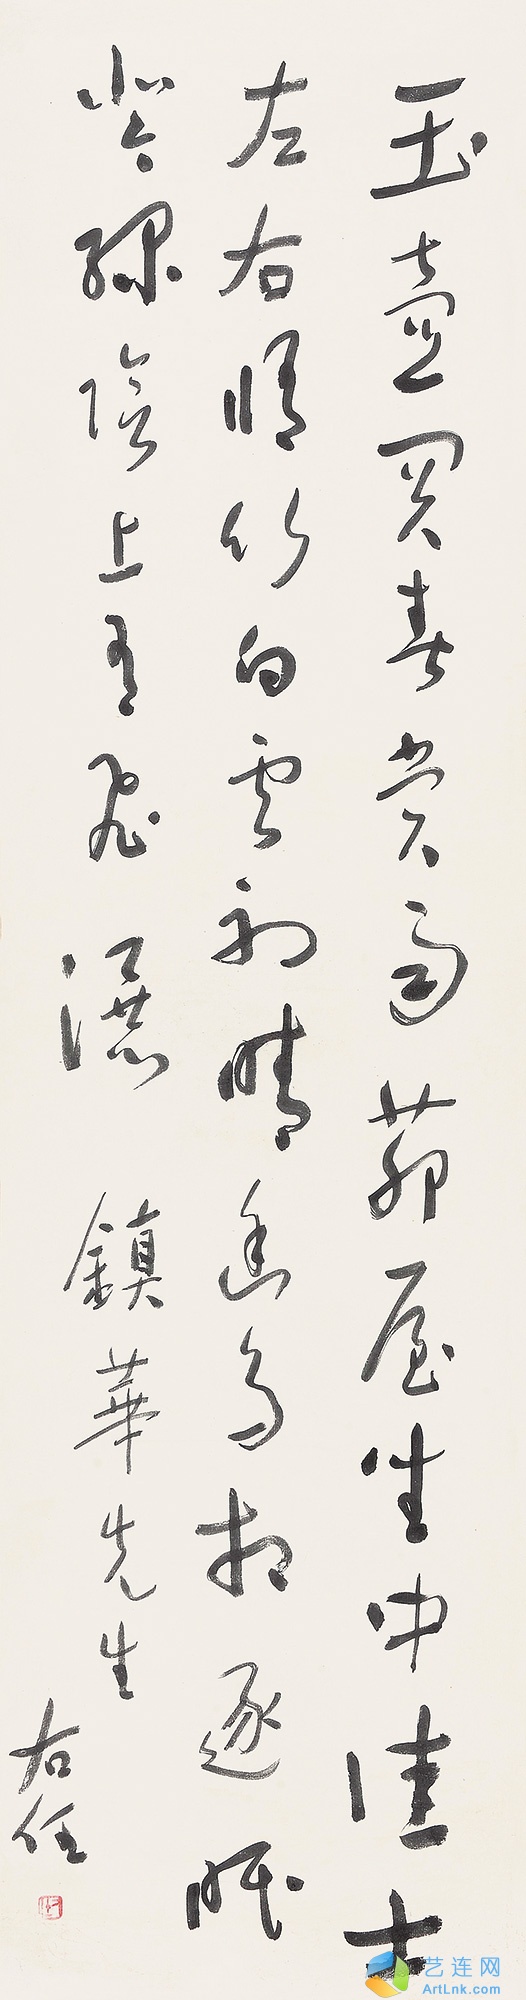 玉壺買春賞雨茆屋坐中佳士
左右脩竹白雲初晴幽鳥相逐眠
琴綠陰上有飛瀑 鎮華先生
右任
艺连网
ArtLnk.com